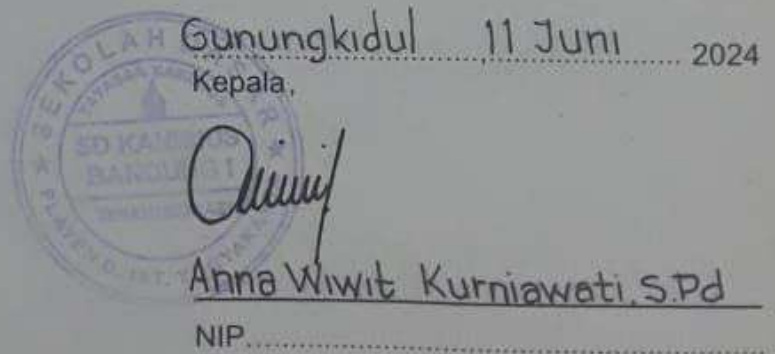 Gunungkidul 11 Juni 2024
Kepala,
SEKOLAH
SD KANISIUS
BANDUNG I
PLAYEN, D. IST. YOGYAKARTA
Anna Wiwit Kurniawati, S.Pd
NIP